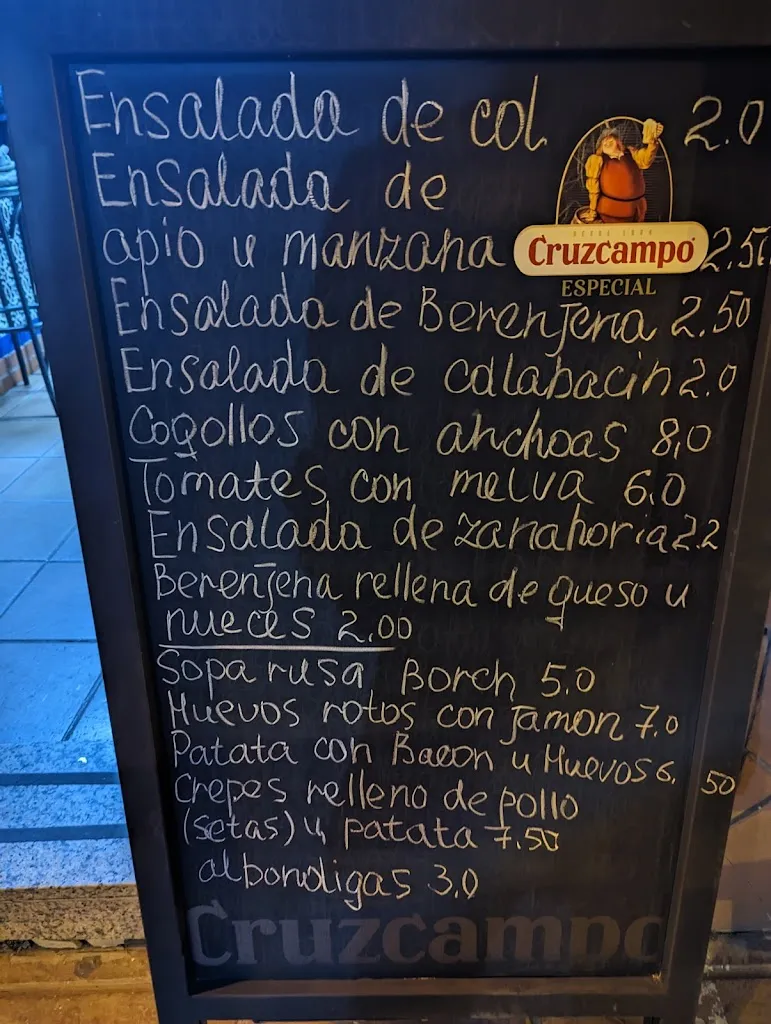 Ensalada de col 2.0
Ensalada de
apio u manzana 2.50
Ensalada de Berenjena 2.50
Ensalada de calabacin 2.0
Cogollos con anchoas 8,0
Tomates con melva 6.0
Ensalada de zanahoria 2.2
Berenjena rellena de queso u
nueces 2.00
Sopa rusa Borch 5.0
Huevos rotos con jamon 7.0
Patata con Bacon u Huevos 6.50
Crepes relleno de pollo
(setas) u patata 7.50
albondigas 3,0
DESDE 1904
Cruzcampo
ESPECIAL
Cruzcampo